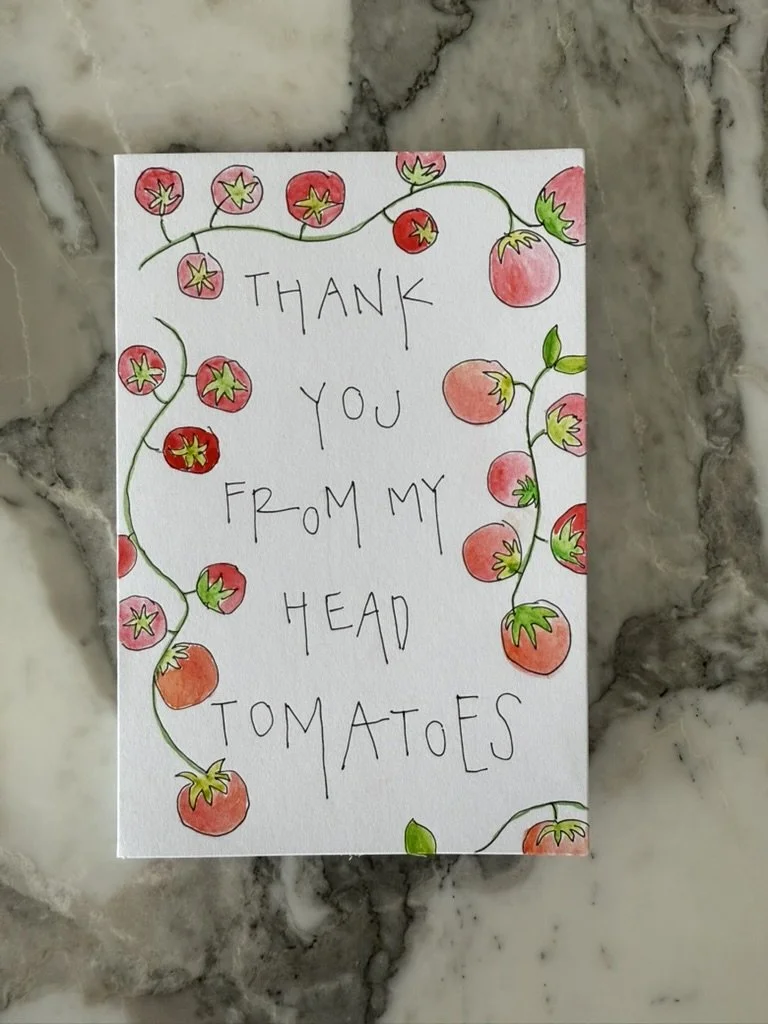 THANK
YOU
FROM MY
HEAD
TOMATOES